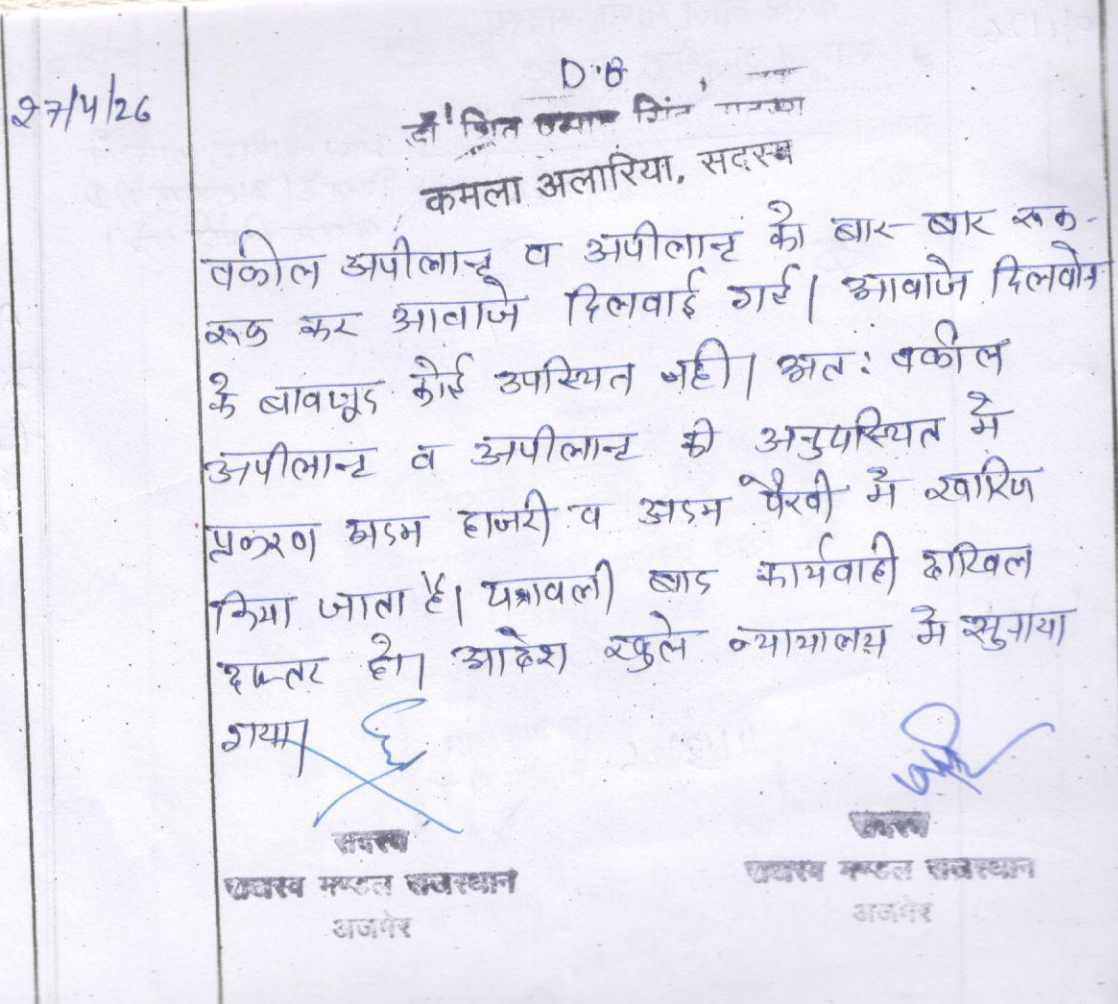 27/4/26
D.B
कमला अलारिया, सदस्य
वकील अपीलान्ट व अपीलान्ट को बार-बार रूक-
रूक कर आवाजे दिलवाई गई। आवाजे दिलवाने
के बावजूद कोई उपस्थित नही। अत: वकील
अपीलान्ट व अपीलान्ट की अनुपस्थित मे
प्रकरण अदम हाजरी व अदम पैरवी मे खारिज
किया जाता है। पत्रावली बाद कार्यवाही दाखिल
दफ्तर हो। आदेश खुले न्यायालय मे सुनाया
गया।
सदस्य सदस्य
राजस्व मण्डल राजस्थान राजस्व मण्डल राजस्थान
अजमेर अजमेर